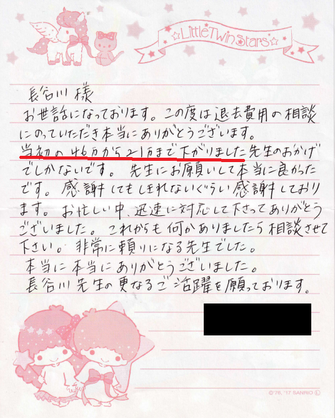 LittleTwinStars
長谷川 様
お世話になっております。この度は退去費用の相談
にのっていただき本当にありがとうございます。
当初の46万から21万まで下がりました先生のおかげ
でしかないです。先生にお願いして本当に良かった
です。感謝してもしきれないぐらい感謝しており
ます。お忙しい中、迅速に対応して下さってありがとう
ございました。これからも何かありましたら相談させて
下さい。非常に頼りになる先生でした。
本当に本当にありがとうございました。
長谷川先生の更なるご活躍を願っております。
©'76, '17 SANRIO